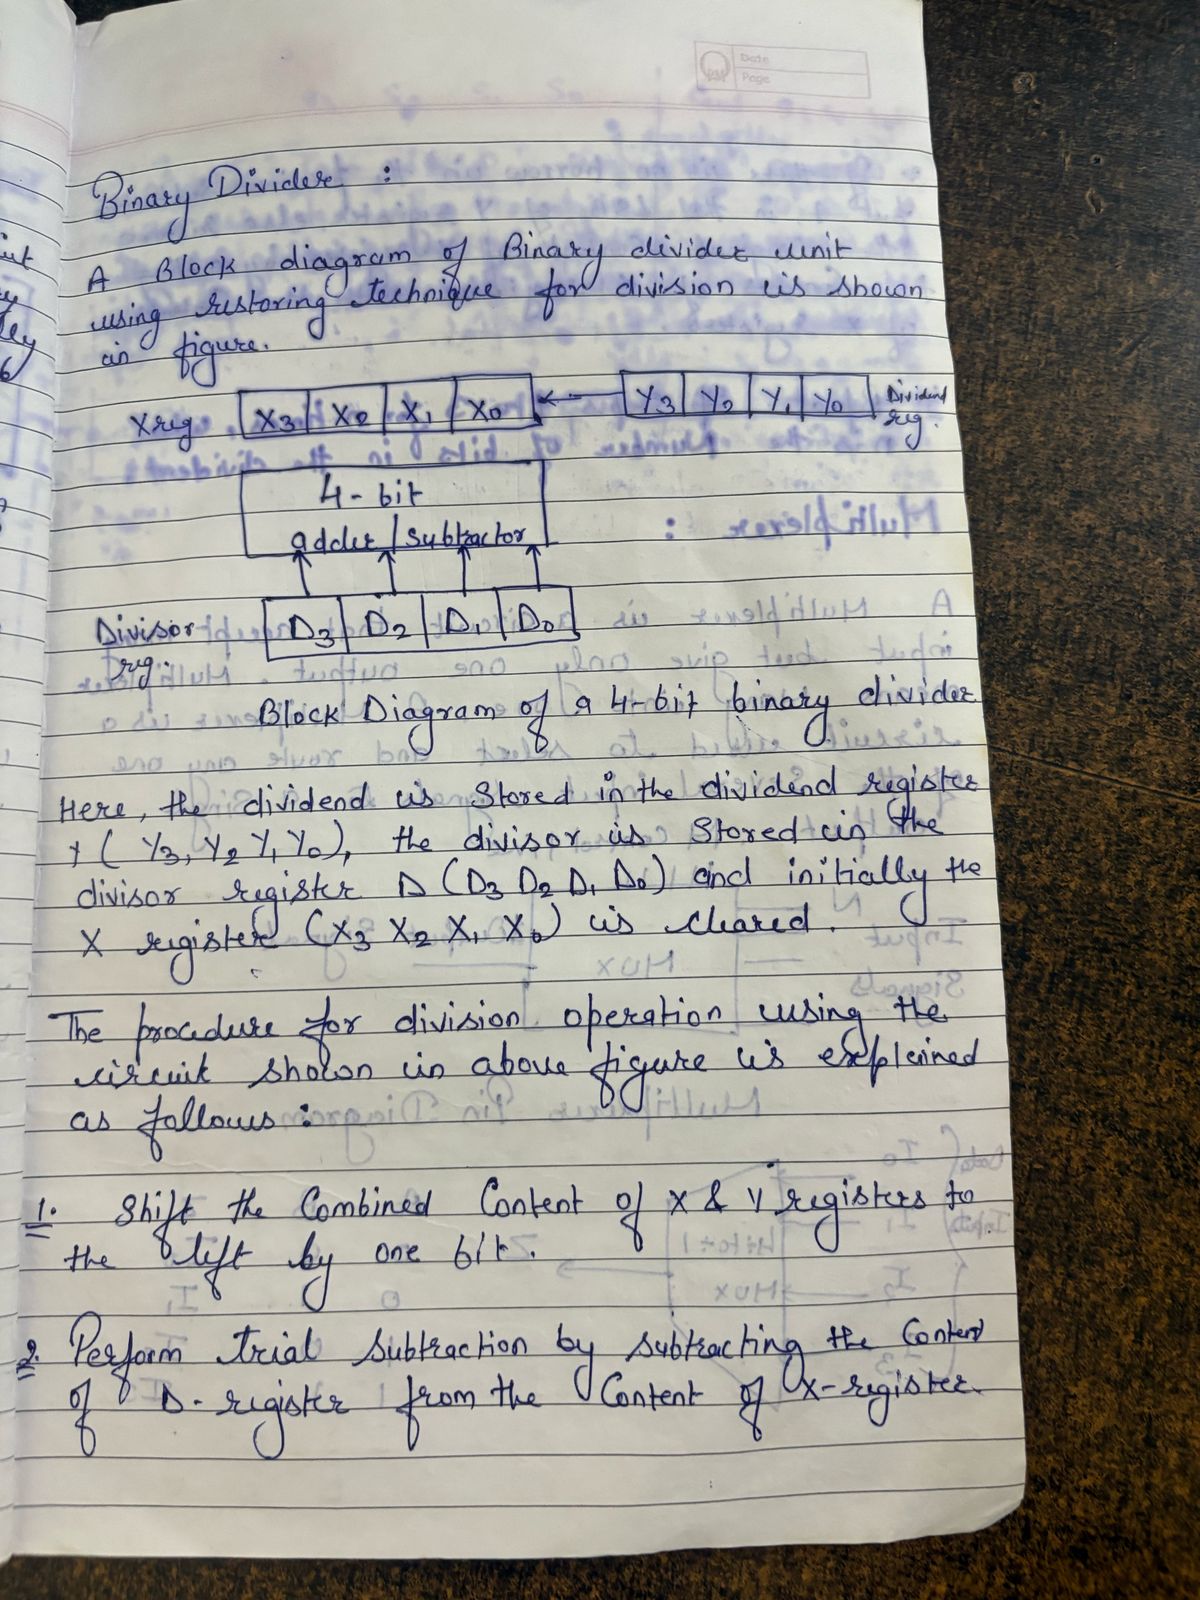 Date
Page
Binary Divider :
A Block diagram of Binary divider unit
using restoring technique for division is shown
in figure.
X reg X3 X2 X1 X0 ← Y3 Y2 Y1 Y0 Dividend reg.
4-bit
adder/subtractor
Divisor reg. D3 D2 D1 D0
Block Diagram of a 4-bit binary divider
Here, the dividend is stored in the dividend register
Y (Y3, Y2 Y1 Y0), the divisor is stored in the
divisor register D (D3 D2 D1 D0) and initially the
X register (X3 X2 X1 X0) is cleared.
The procedure for division operation using the
circuit shown in above figure is explained
as follows :
1. Shift the Combined Content of X & Y registers to
the left by one bit.
2. Perform trial subtraction by subtracting the Content
of D-register from the Content of X-register.